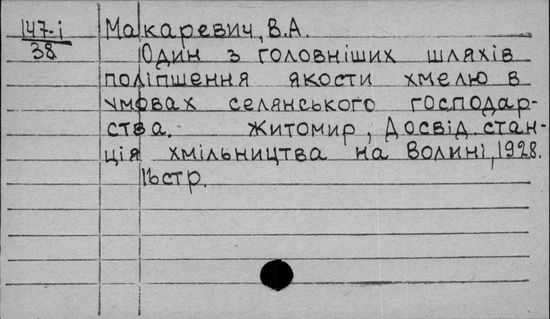 147-і Макаревич, В.А.
38 Один з головніших шляхів
поліпшення якости хмелю в
умовах селянського господар-
ства. - Житомир, Досвід.стан-
ція хмільництва на Волині, 1928.
стр.